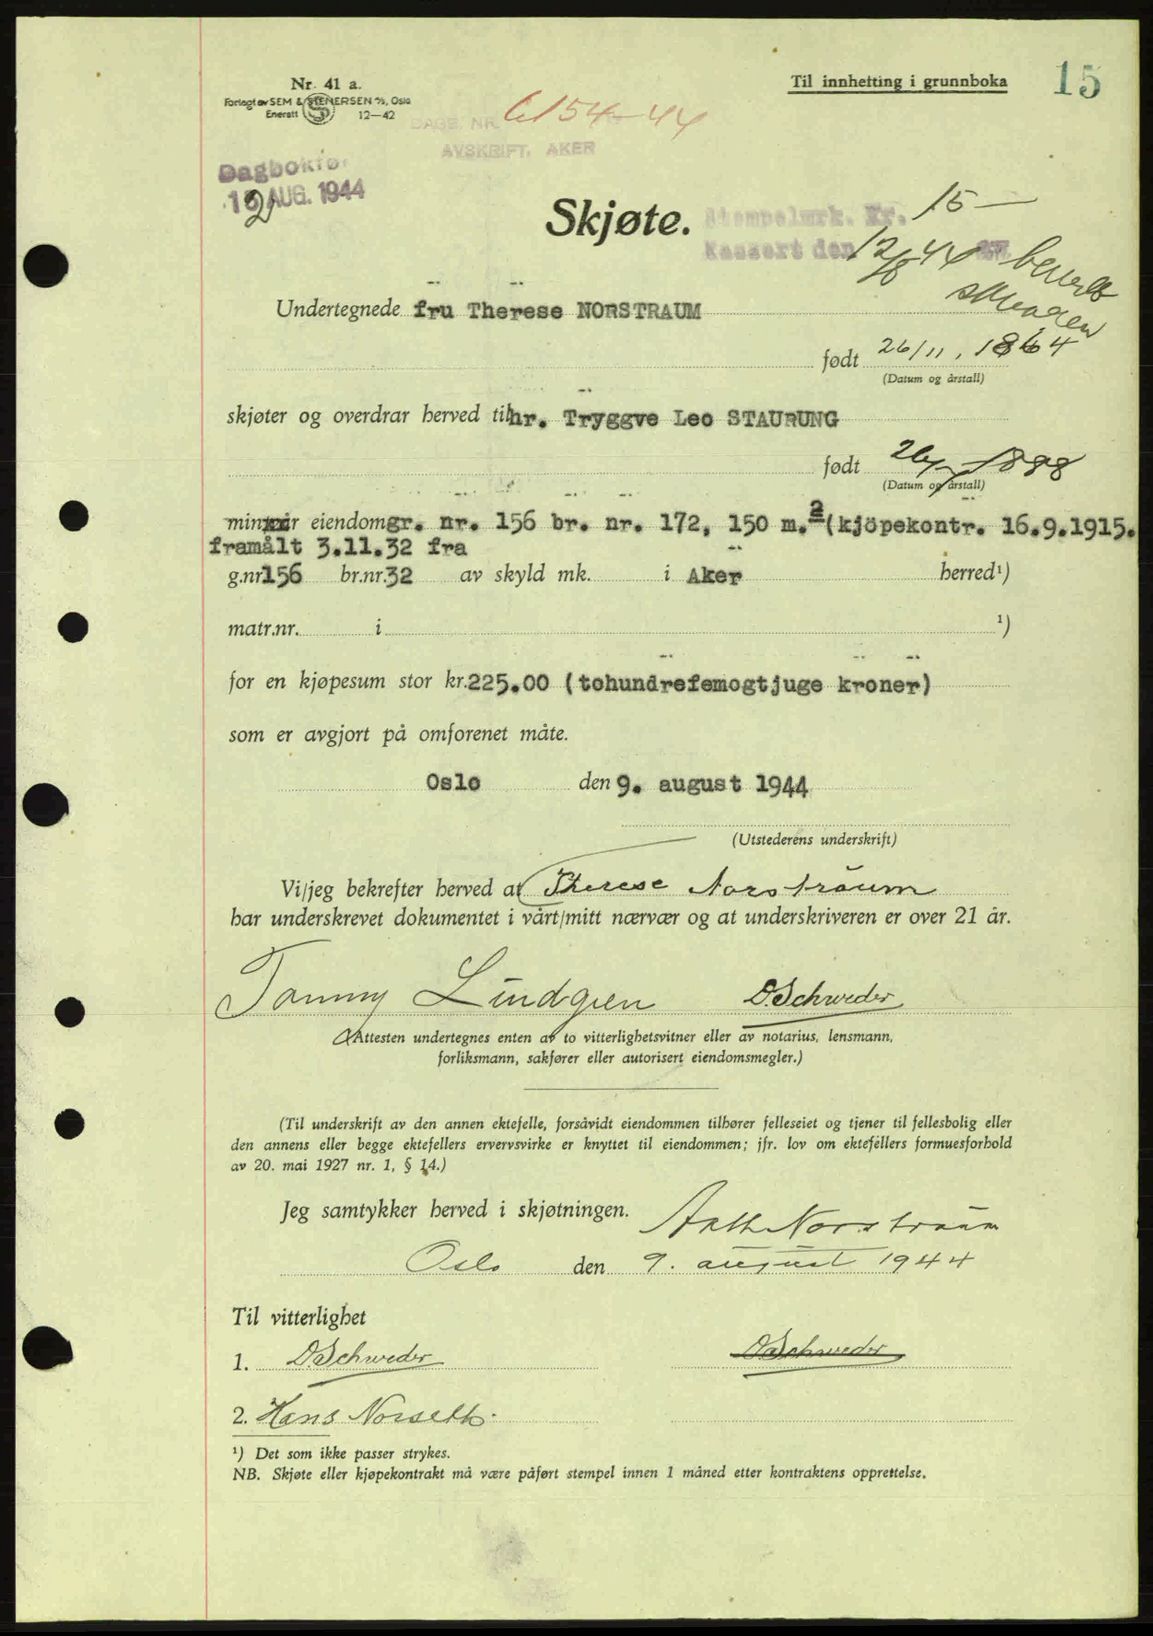 Nr. 41 a.
Forlagt av SEM & STENERSEN A/S, Oslo
Enerett 12—42
Til innhefting i grunnboka 15
DAGB. NR. 6154-44
AVSKRIFT, AKER
Dagbokfø
12 AUG. 1944
Skjøte.
Stempelmrk. Kr. 15 —
Kassert den 12/8 44
Undertegnede fru Therese NORSTRAUM
født 26/11, 1864
(Datum og årstall)
skjøter og overdrar herved til hr. Tryggve Leo STAURUNG
født 1888
(Datum og årstall)
min eiendom gr. nr. 156 br. nr. 172, 150 m.2 (kjöpekontr. 16.9.1915.
framålt 3.11.32 fra
g.nr. 156 br.nr. 32 av skyld mk. i Aker herred¹)
matr.nr. i ¹)
for en kjøpesum stor kr. 225.00 (tohundrefemogtjuge kroner)
som er avgjort på omforenet måte.
Oslo den 9. august 1944
(Utstederens underskrift)
Vi/jeg bekrefter herved at Therese Norstraum
har underskrevet dokumentet i vårt/mitt nærvær og at underskriveren er over 21 år.
Tommy Lindgren D. Schweder
(Attesten undertegnes enten av to vitterlighetsvitner eller av notarius, lensmann,
forliksmann, sakfører eller autorisert eiendomsmegler.)
(Til underskrift av den annen ektefelle, forsåvidt eiendommen tilhører felleseiet og tjener til fellesbolig eller
den annens eller begge ektefellers ervervsvirke er knyttet til eiendommen; jfr. lov om ektefellers formuesforhold
av 20. mai 1927 nr. 1, § 14.)
Jeg samtykker herved i skjøtningen. Anth Norstraum
Oslo den 9. august 1944
Til vitterlighet
1. D Schweder D Schweder
2. Hans Norseth.
¹) Det som ikke passer strykes.
NB. Skjøte eller kjøpekontrakt må være påført stempel innen 1 måned etter kontraktens opprettelse.